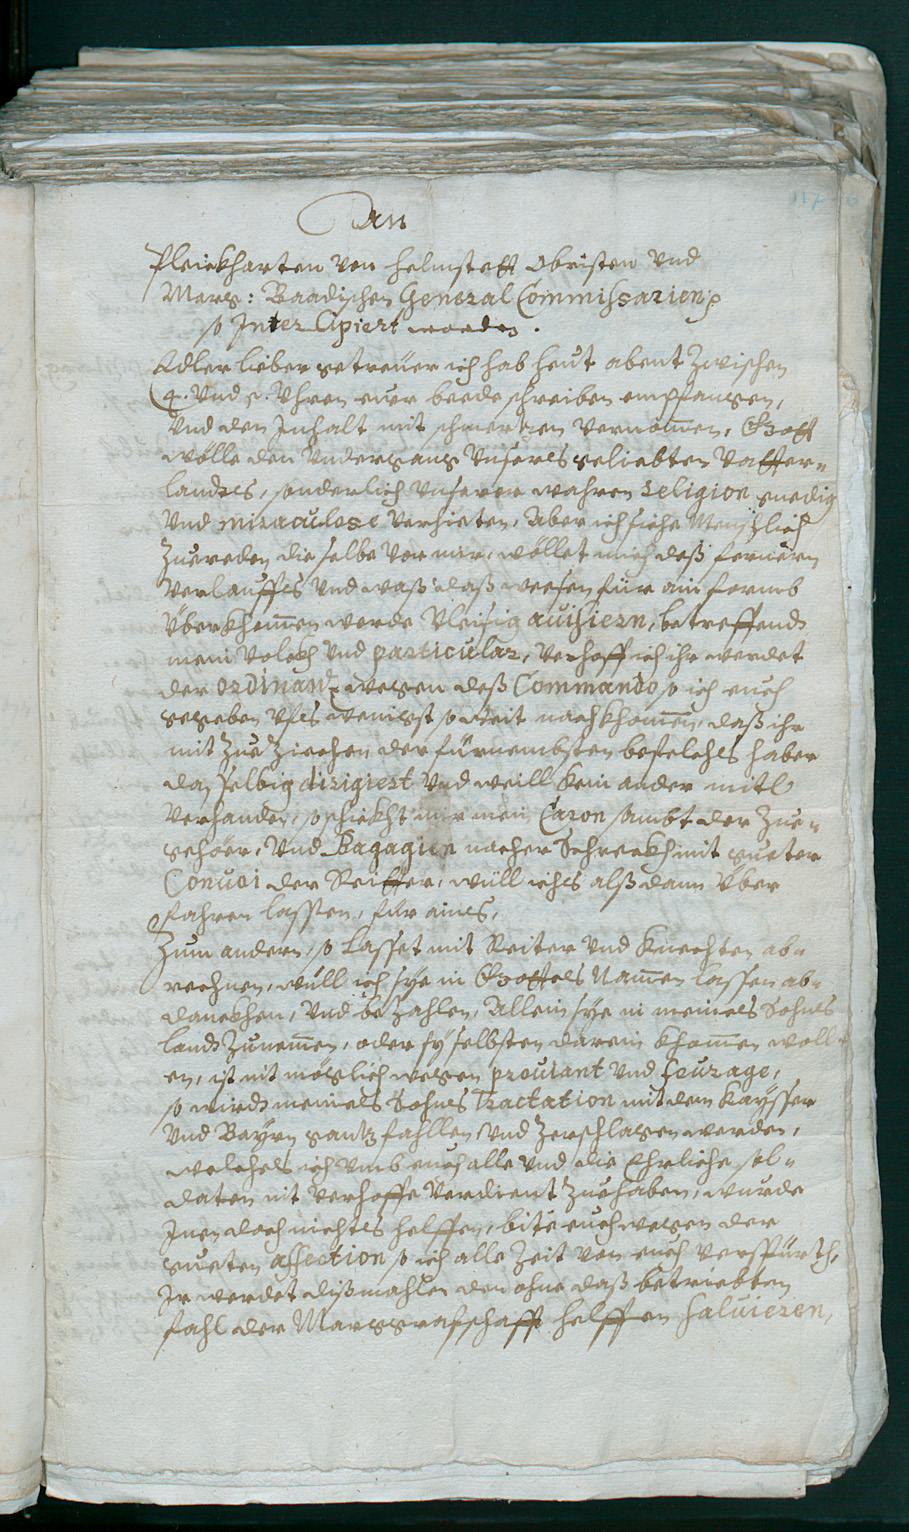 117
An
Pleickharten von Helmstett Obristen Und
Marg: Baadischen General Commissarien
so Inter Cipiert worden.
Edler lieber getreüer ich hab heut abent Zwischen
4. Und 5. Uhren euer beede schreiben empfangen,
Und den Inhalt mit schmertzen Vernommen, Gott
wölle den Undergang Unseres geliebten Vatter-
landes, sonderlich Unserer wahren religion gnedig
Und miraculose Verhieten, Aber ich siehe Menschlich
Zuereden die selbe vor mir, wöllet mich deß fernern
Verlauffes Und waß daß weesen für ain formb
Überkhommen werde Vleisig avisiern, betreffendt
mein Volckh Und particular, Verhoff ich ihr werdet
der Ordinantz wegen deß Commando so ich euch
gegeben Ufs wenigst so weit nachkhommen, daß ihr
mit Zue Ziechen der fürnembsten befelchs haber
daßselbig dirigiert Und weill kein ander mitl
Verhanden, so schickht mir mein Caron sambt der Zue-
gehöer, Und Bagagien nacher Schreckh mit gueter
Convoi der Reitter, wüll ichs alß dann Über
fahren lassen, für aines,
Zum andern, so lasset mit Reiter Und Knechten ab-
rechnen, wüll ich sye in Gottes Nammen lassen ab-
danckhen, Und beZahlen, Allein sye in meines Sohns
landt Zunemmen, oder sy selbsten darein khommen woll-
en, ist nit möglich wegen proviant Und fourage,
so wirdt meines Sohnes Tractation mit dem Kaysser
Und Bayrn gantz fahllen Und Zerschlagen werden,
welches ich Umb euch alle und die Ehrliche sol-
daten nit Verhoffe Verdient Zuehaben, wurde
Inen doch nichts helffen, bite euch wegen der
gueten affection so ich alle Zeit von euch verspürth,
Ir werdet dißmahlen den ohne daß betriebten
fahl der Marggrafschafft helffen salvieren,